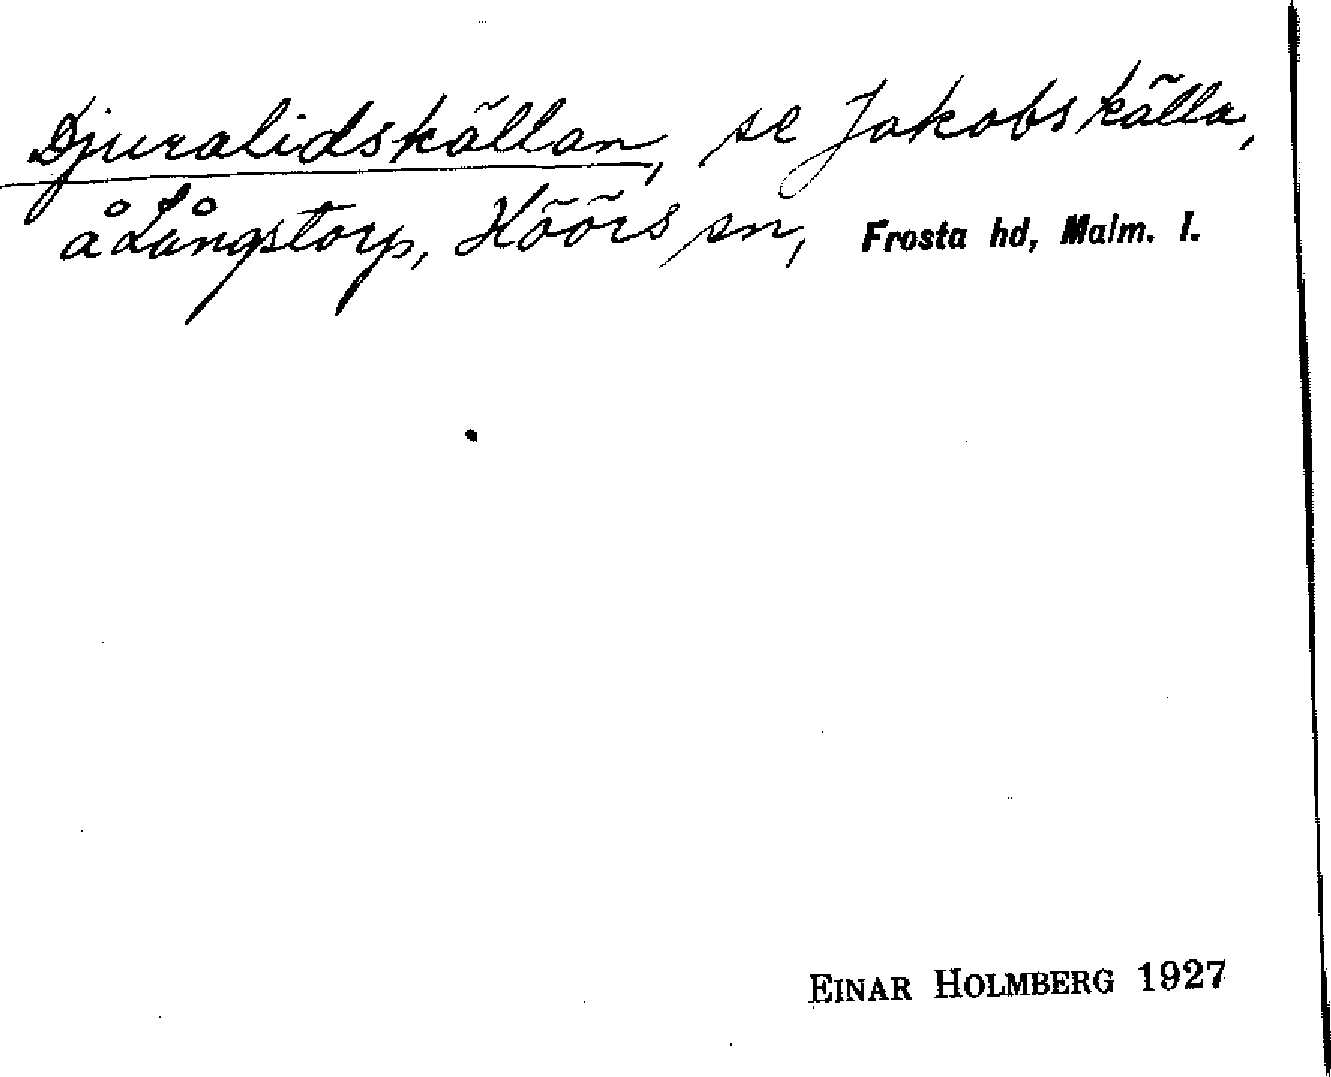 Djuralidskällan, se Jakobskälla,
å Långstorp, Höörs sn, Frosta hd, Malm. l.
EINAR HOLMBERG 1927